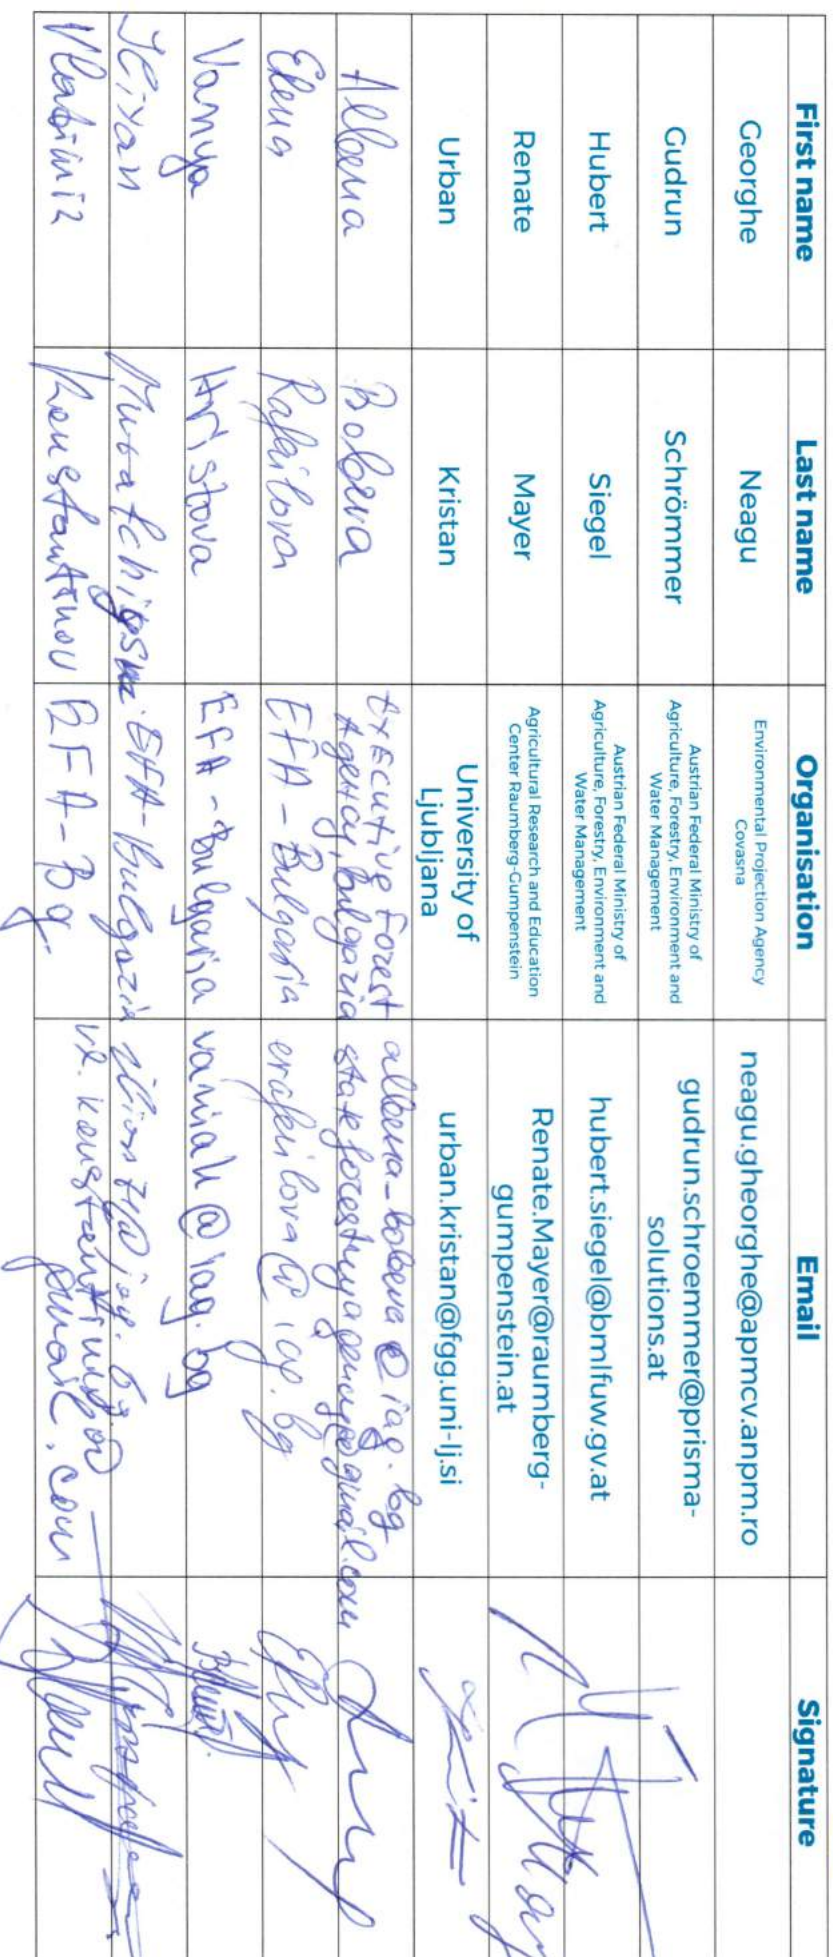 First name Last name Organisation Email Signature
Georghe Neagu Environmental Projection Agency Covasna neagu.gheorghe@apmcv.anpm.ro
Gudrun Schrömmer Austrian Federal Ministry of Agriculture, Forestry, Environment and Water Management gudrun.schroemmer@prisma-solutions.at
Hubert Siegel Austrian Federal Ministry of Agriculture, Forestry, Environment and Water Management hubert.siegel@bmlfuw.gv.at
Renate Mayer Agricultural Research and Education Center Raumberg-Gumpenstein Renate.Mayer@raumberg-gumpenstein.at
Urban Kristan University of Ljubljana urban.kristan@fgg.uni-lj.si
Albena Bobeva Executive Forest Agency, Bulgaria albena_bobeva@iag.bg
Elena Rafailova EFA - Bulgaria erafailova@iag.bg
Vanya Hristova EFA - Bulgaria vaniah@iag.bg
EFA - Bulgaria
Vladimir Konstantinov BG